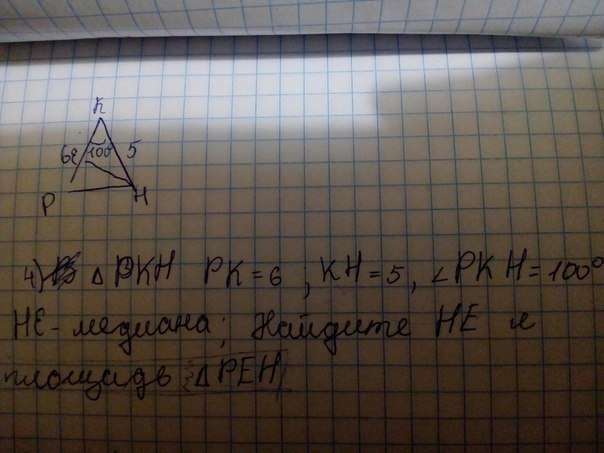 K
6 E 100° 5
P H
4) △ PKH PK = 6 ; KH = 5, ∠ PKH = 100°
HE - медиана; Найдите HE и
площадь △ PEH